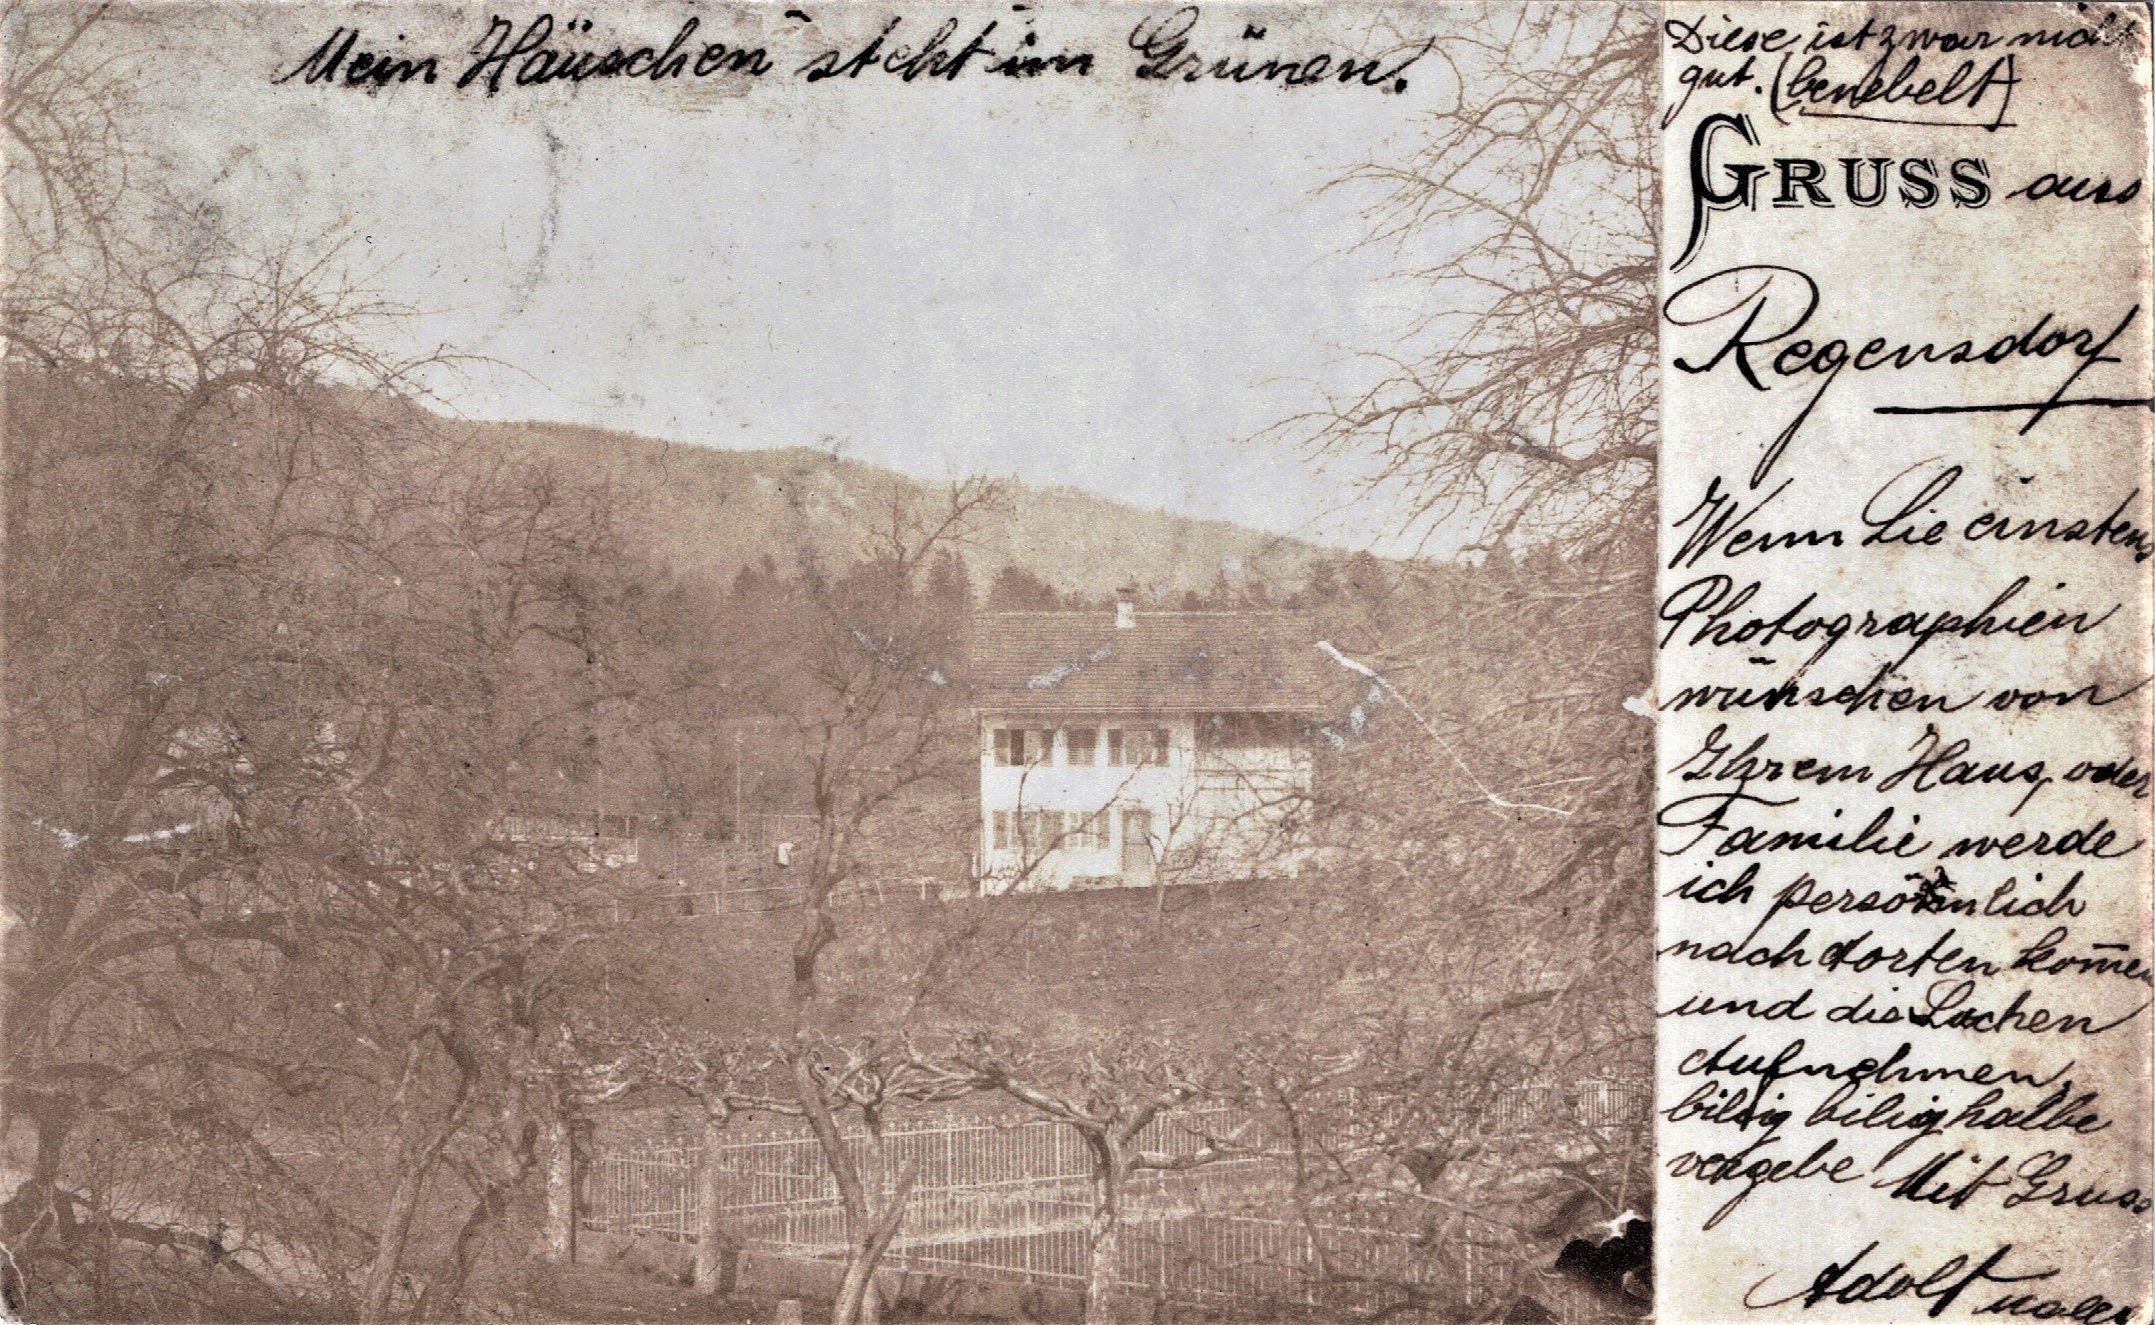 Mein Häuschen steht im Grünen.
Diese ist zwar nicht
gut. (benebelt)
GRUSS aus
Regensdorf
Wenn Sie einstens
Photographien
wünschen von
Ihrem Haus, oder
Familie werde
ich persönlich
nach dorten kom̄en
und die Sachen
Aufnehmen,
billig bilig halbe
vergebe Mit Gruss
Adolf